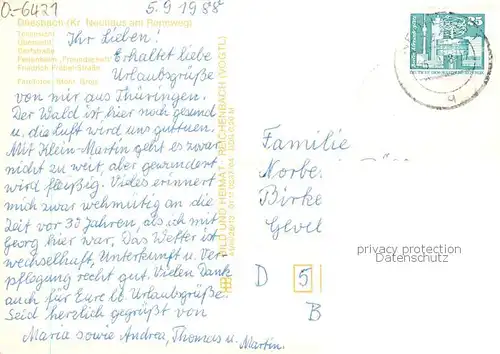 O-6421
5.9.1988
Ihr Lieben!
Erhaltet liebe
Urlaubsgrüße
von mir aus Thüringen.
Der Wald ist hier noch gesund
u. die Luft wird uns guttuen.
Mit Klein-Martin geht es zwar
nicht zu weit, aber gewandert
wird fleißig. Vieles erinnert
mich zwar wehmutig an die
Zeit vor 30 Jahren, als ich mit
Georg hier war. Das Wetter ist
wechselhaft, Unterkunft u. Ver-
pflegung recht gut. Vielen Dank
auch für Eure lb. Urlaubsgrüße.
Seid herzlich gegrüßt von
Maria sowie Andrea, Thomas u. Martin.
(Kr. Neuhaus am Rennweg)
Friedrich-Fröbel-Straße
BILD UND HEIMAT REICHENBACH (VOGTL)
25
Familie
Norbe
Birke
Gevel
D 5
B
privacy protection
Datenschutz